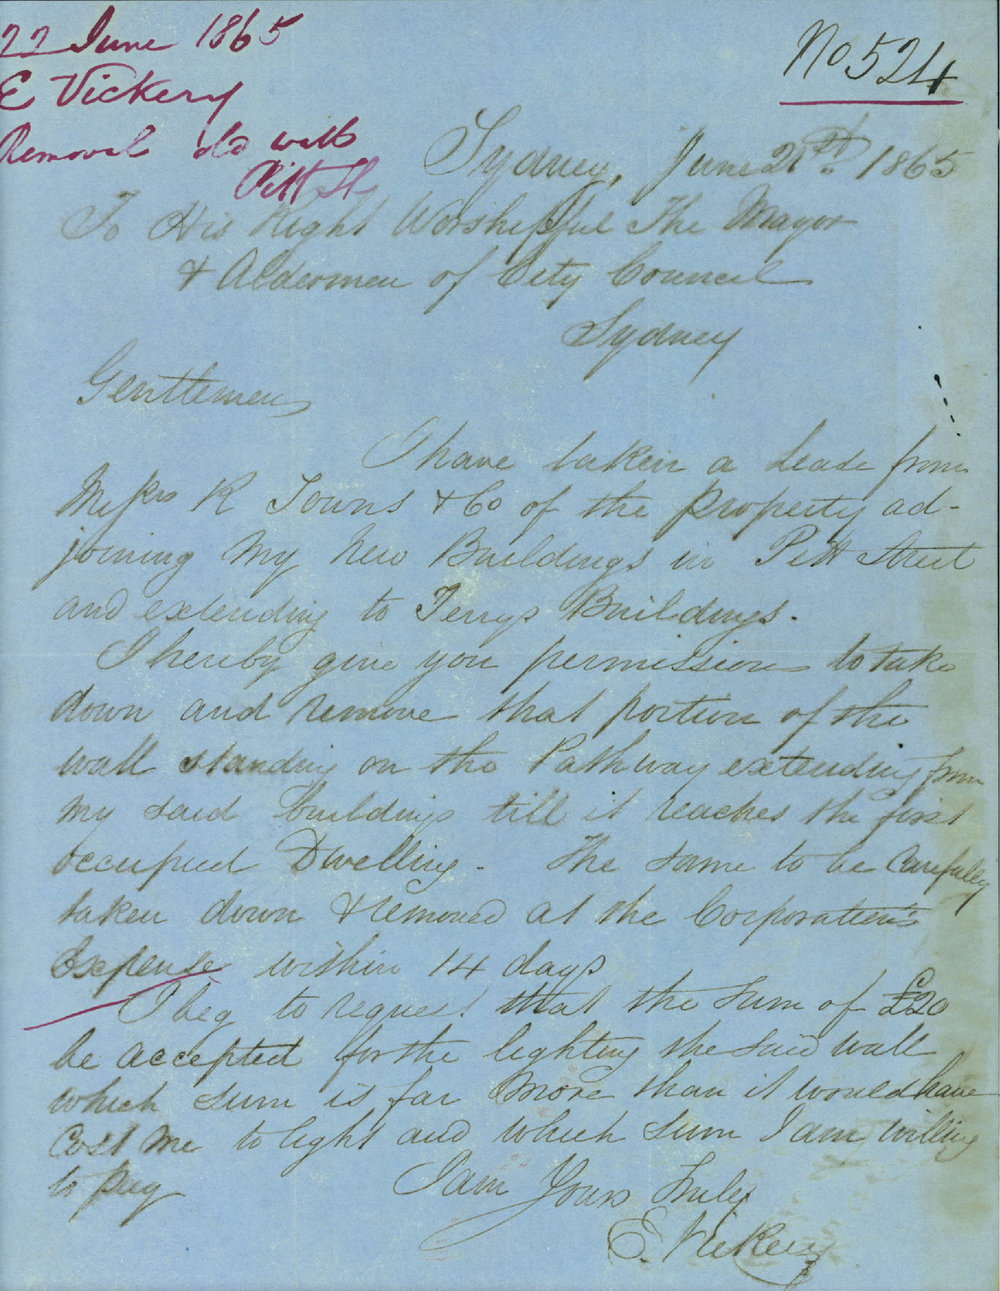 22 June 1865
E Vickery
Removal old wall
Pitt St
No 524
Sydney, June 21st 1865
To His Right Worshipful The Mayor
& Aldermen of City Council
Sydney
Gentlemen
I have taken a Lease from
Messrs R Towns & Co of the property ad-
joining my new Buildings in Pitt Street
and extending to Terrys Buildings.
I hereby give you permission to take
down and remove that portion of the
wall standing on the Pathway extending from
my said buildings till it reaches the first
occupied Dwelling - The same to be Carefuley
taken down & removed at the Corporation's
Expense within 14 days
I beg to request that the sum of £20
be accepted for the lighting the said wall
which sum is far more than it would have
Cost me to light and which sum I am willing
to pay
I am Yours Truly
E. Vickery